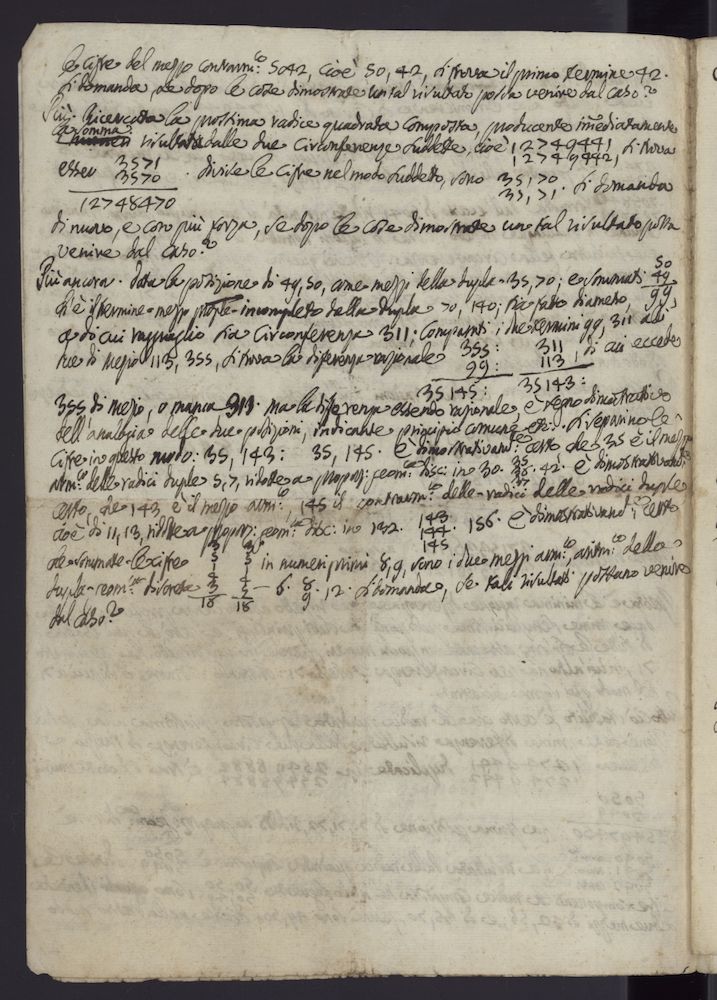 le cifre del mezzo contrarm:co 5042, cioè 50, 42, si trova il primo termine 42.
si domanda se dopo le cose dimostrate un tal risultato possa venire dal caso?
Più. Ricercata la prossima radice quadrata composta, producente immediatamente
la somma risultata dalle due circonferenze suddette, cioè 12749441
12749442, si trova
esser 3571
3570 . divise le cifre nel modo suddetto, sono 35, 70
35, 71 . si domanda
12748470
di nuovo, e con più forza, se dopo le cose dimostrate un tal risultato possa
venire dal caso?
Più ancora. Data la posizione di 49, 50, come mezzi della dupla 35, 70; e sommati 50
49
ch'è il termine mezzo incompleto della dupla 70, 140; sia fatto diametro, 99,
a di cui ragguaglio sia circonferenza 311; comparati i due termini 99, 311 alli
due di Mezio 113, 355, si trova la differenza razionale 355: 311
99: 113, di cui eccede
35145: 35143:
355 di Mezio, o manca 311. ma la differenza essendo razionale, è segno dimostrativo
dell'analogia delle due posizioni, indicante principio comune etc. Si separino le
cifre in questo modo: 35, 143: 35, 145. è dimostrativamte certo che 35 è il mezzo
arm:co delle radici duple 5, 7, ridotte a propor: geom:ca disc: in 30. 35
36 . 42. è dimostrativamte
certo, che 143 è il mezzo arm:co, 145 il contrarm:co delle radici delle radici duple
cioè di 11, 13, ridotte a propor: geom:ca disc: in 132. 143
144. 156. è dimostrativamte certo
145
che sommate le cifre 3 3
5 5 in numeri primi 8, 9, sono i due mezzi arm:co, aritm:co della
1 1
4 4
dupla geom:ca discreta 3 5 – 6. 8. 12. si domanda, se tali risultati possano venire
16 18 9
dal caso?